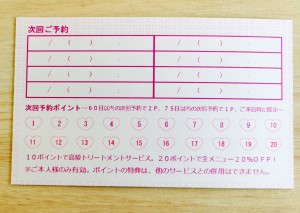 次回ご予約
/ ( ) : / ( ) :
/ ( ) : / ( ) :
/ ( ) : / ( ) :
/ ( ) : / ( ) :
次回予約ポイント～60日以内の次回予約で2P、75日以内の次回予約で1P、ご来店時に押印～
1 2 3 4 5 6 7 8 9 10
11 12 13 14 15 16 17 18 19 20
10ポイントで高級トリートメントサービス。20ポイントで全メニュー20%OFF!
※ご本人様のみ有効。ポイントの特典は、他のサービスとの併用はできません。